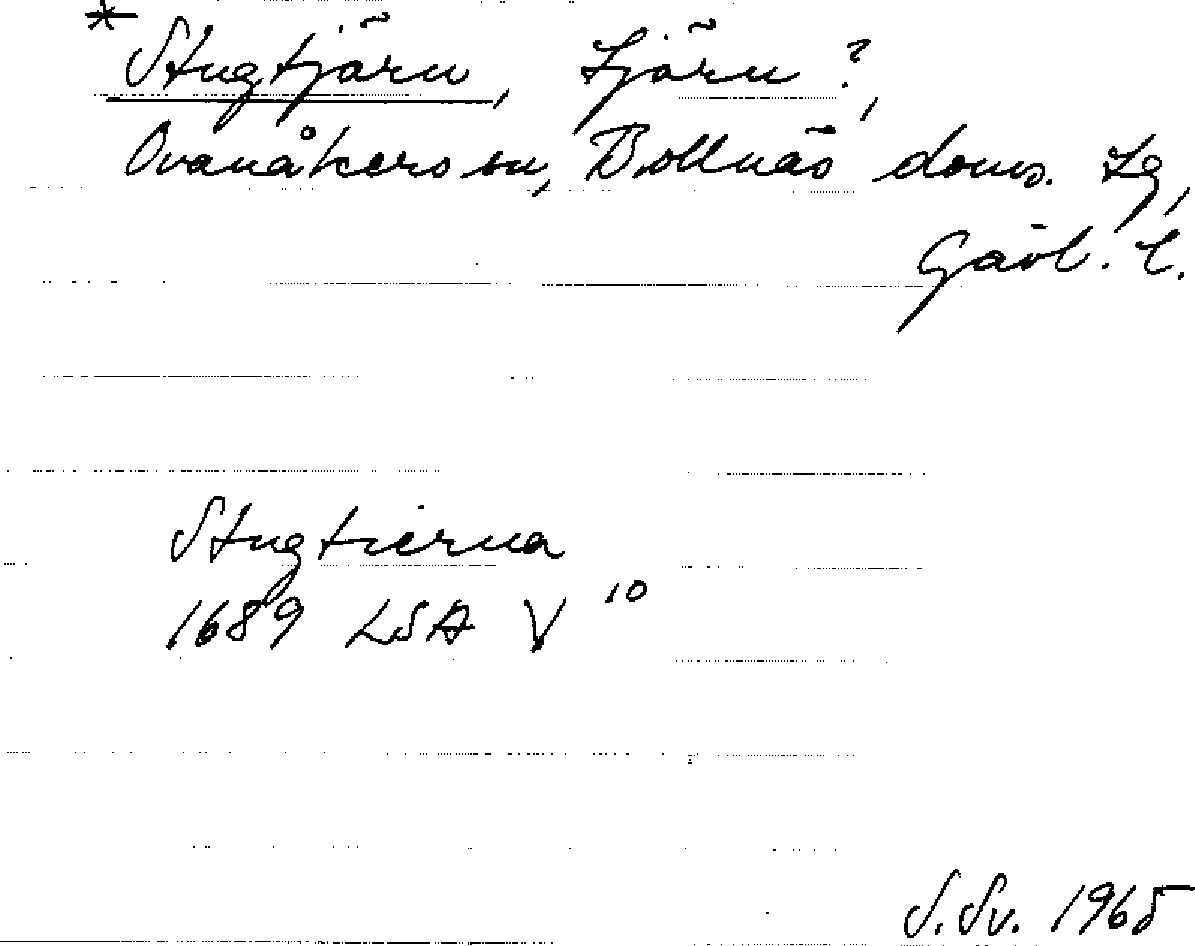 *Stugtjärn, Tjärn?,
Ovanåkers sn, Bollnäs doms. Lg,
Gävl. l.
Stugtierna
1689 LSA V 10
S.Sv. 1965